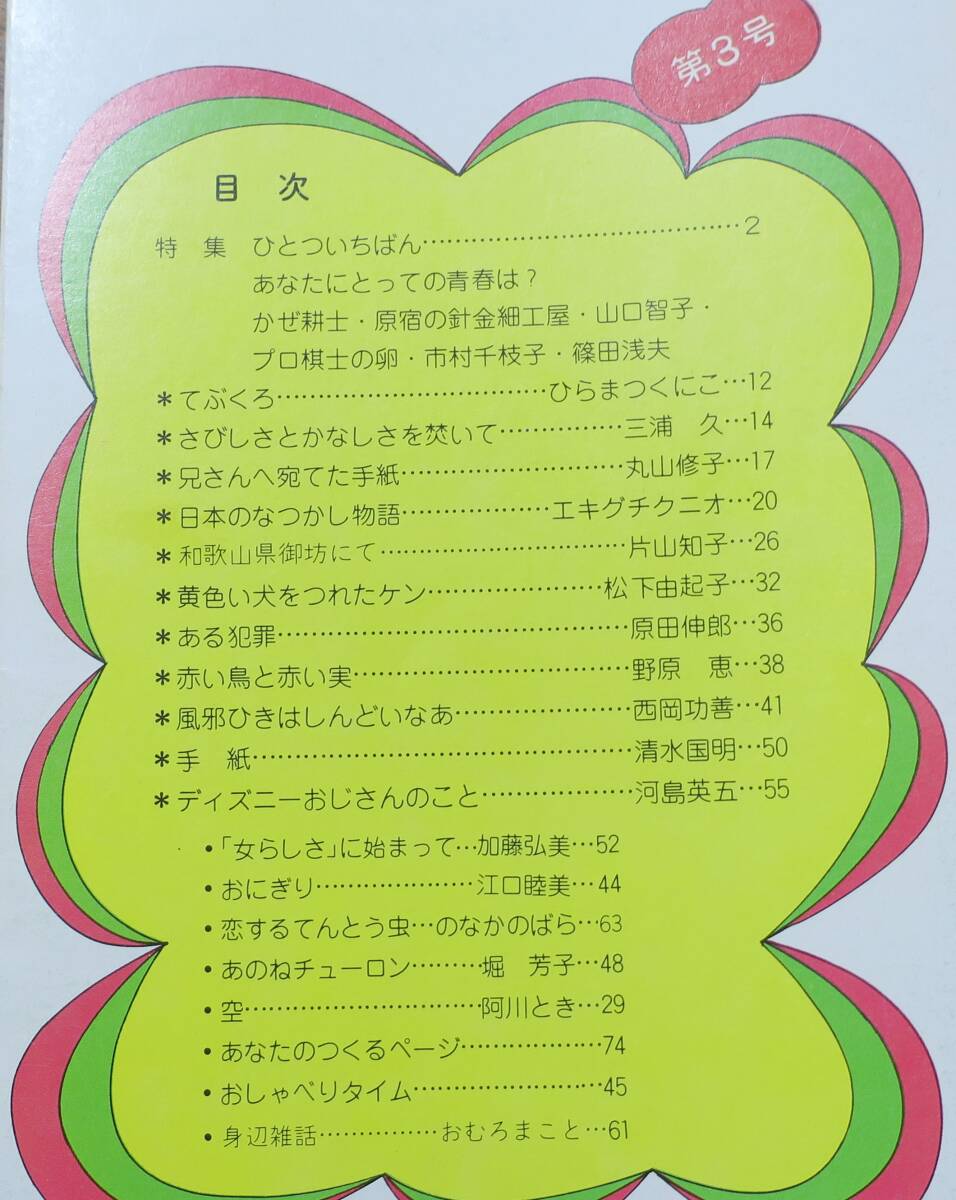 第3号
目次
特集 ひとついちばん……………………………………2
あなたにとっての青春は?
かぜ耕士・原宿の針金細工屋・山口智子・
プロ棋士の卵・市村千枝子・篠田浅夫
*てぶくろ……………………………ひらまつくにこ…12
*さびしさとかなしさを焚いて……………三浦 久…14
*兄さんへ宛てた手紙………………………丸山修子…17
*日本のなつかし物語………………エキグチクニオ…20
*和歌山県御坊にて…………………………片山知子…26
*黄色い犬をつれたケン…………………松下由起子…32
*ある犯罪……………………………………原田伸郎…36
*赤い鳥と赤い実……………………………野原 恵…38
*風邪ひきはしんどいなあ…………………西岡功善…41
*手 紙………………………………………清水国明…50
*ディズニーおじさんのこと………………河島英五…55
・「女らしさ」に始まって…加藤弘美…52
・おにぎり………………江口睦美…44
・恋するてんとう虫…のなかのばら…63
・あのねチューロン………堀 芳子…48
・空…………………………阿川とき…29
・あなたのつくるページ………………74
・おしゃべりタイム……………………45
・身辺雑話……………おむろまこと…61